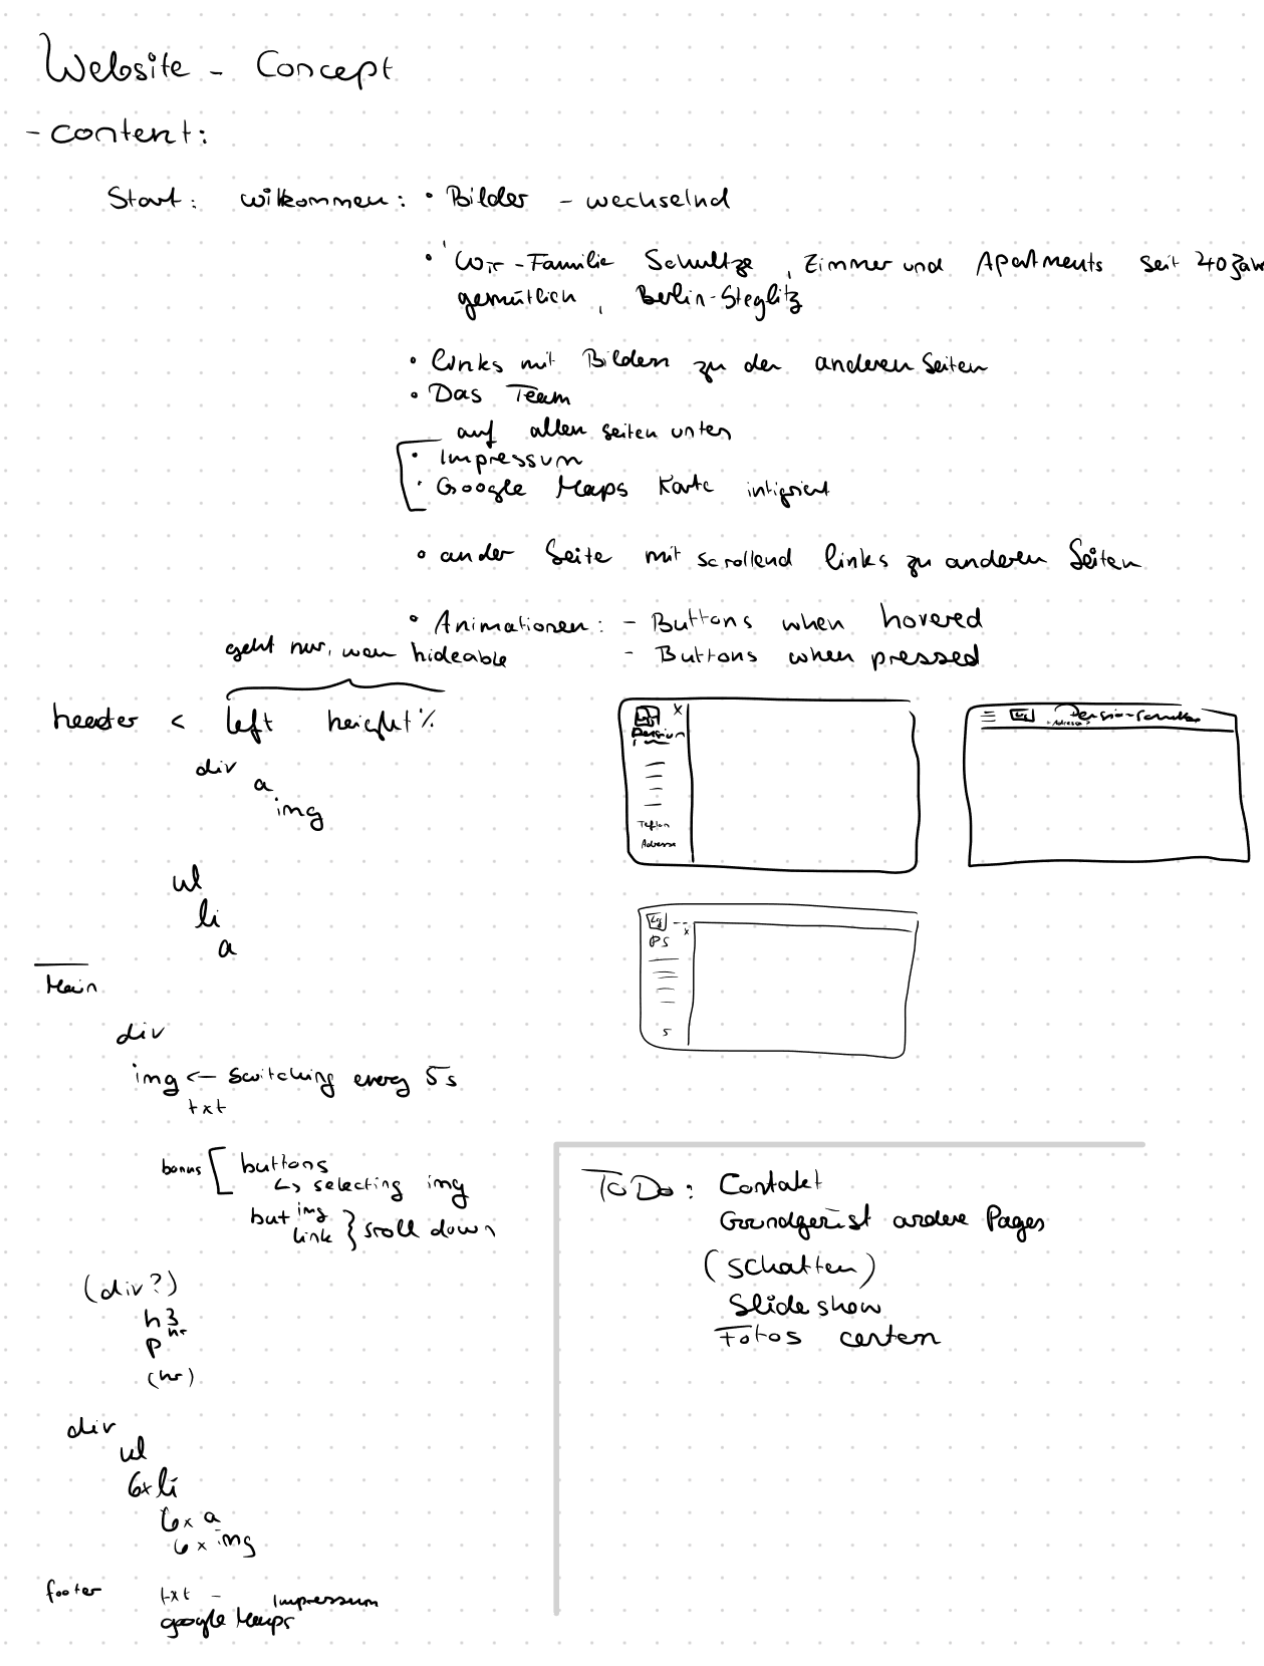 Website - Concept
- content:
Start: wilkommen: • Bilder - wechselnd
• Wir - Familie Schultze, Zimmer und Apartments seit 40 Jahr
gemütlich, Berlin-Steglitz
• Links mit Bildern zu den anderen Seiten
• Das Team
auf allen Seiten unten
• Impressum
• Google Maps Karte intigriert
• an der Seite mit scrollend links zu anderen Seiten
• Animationen: - Buttons when hovered
geht nur, wenn hideable - Buttons when pressed
header < left height %
div
a
img
ul
li
a
X
Pension
Telefon
Adresse
Pension-Schultze
Adresse
PS
x
s
Main
div
img <- switching every 5s
txt
bonus [ buttons
↳ selecting img
but img
link } scroll down
(div?)
h3
hr
p
(hr)
div
ul
6x li
6x a
6x img
footer txt - Impressum
google Maps
ToDo: Contakt
Grundgerüst andere Pages
(Schatten)
Slideshow
Fotos